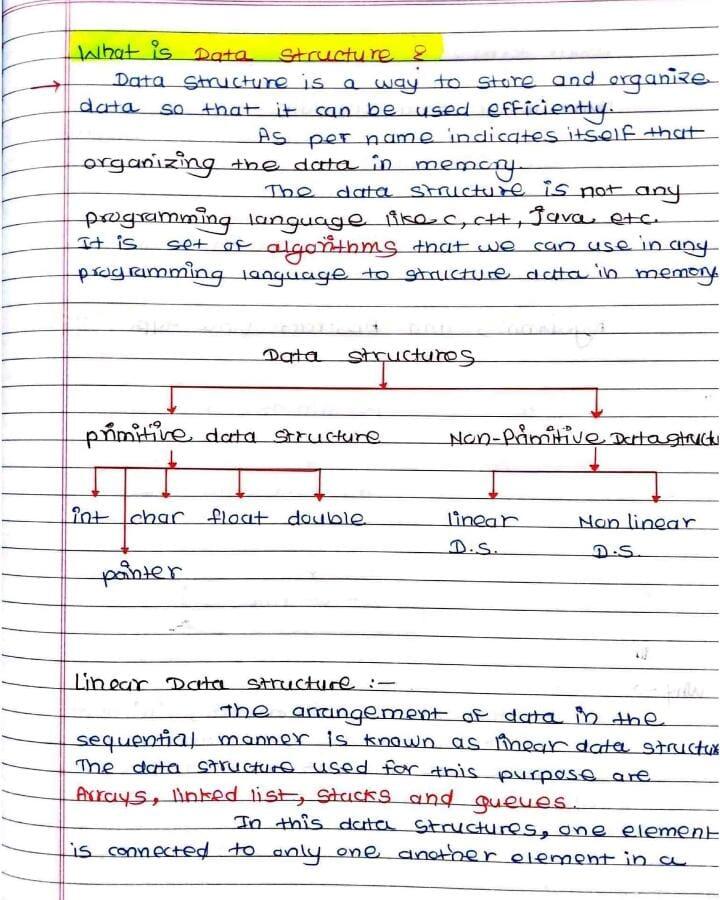 What is Data Structure ?
Data Structure is a way to store and organize
data so that it can be used efficiently.
As per name indicates itself that
organizing the data in memory.
The data structure is not any
programming language like c, c++, Java etc.
It is set of algorithms that we can use in any
programming language to structure data in memory
Data structures
primitive data structure Non-Primitive Data structu
int char float double linear Non linear
D.S. D.S.
pointer
Linear Data structure :-
The arrangement of data in the
sequential manner is known as linear data structur
The data structure used for this purpose are
Arrays, linked list, stacks and queues.
In this data structures, one element
is connected to only one another element in a